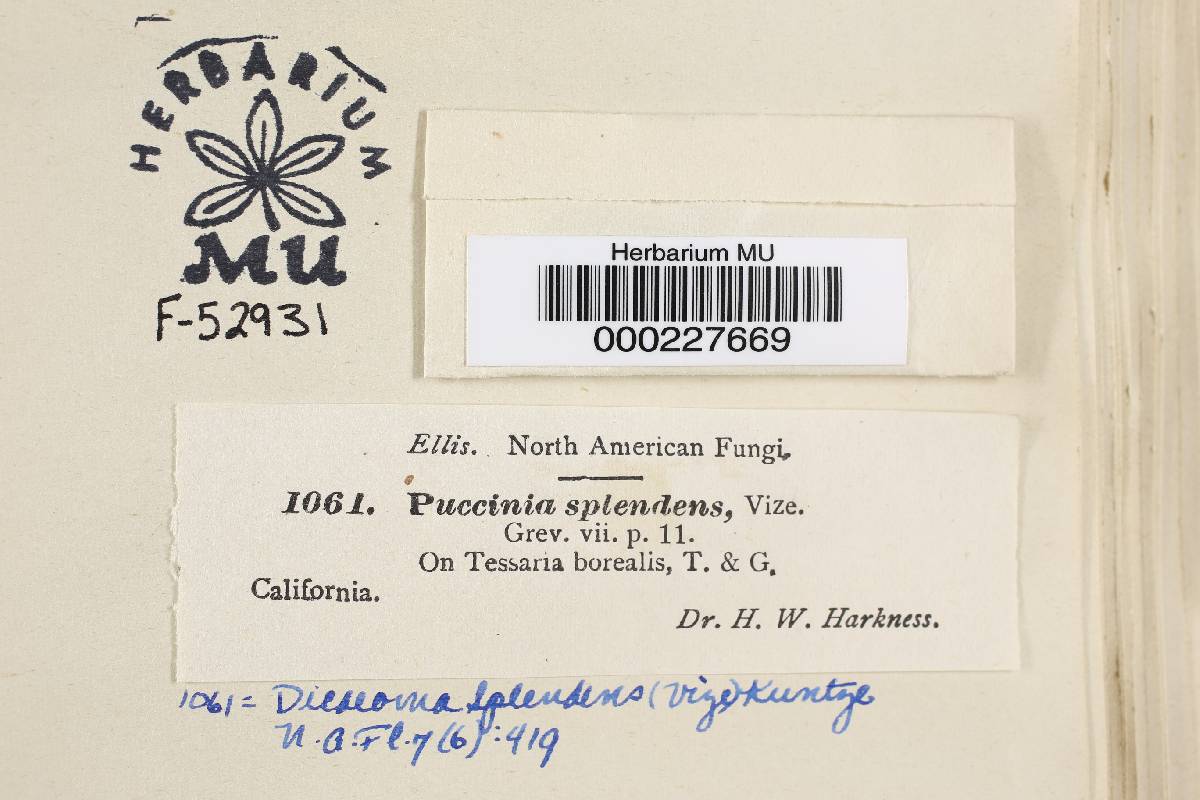 HERBARIUM
MU
F-52931
Herbarium MU
000227669
Ellis. North American Fungi.
1061. Puccinia splendens, Vize.
Grev. vii. p. 11.
On Tessaria borealis, T. & G.
California.
Dr. H. W. Harkness.
1061 = Dicaeoma splendens (Vize) Kuntze
N.A.Fl. 7 (6) : 419